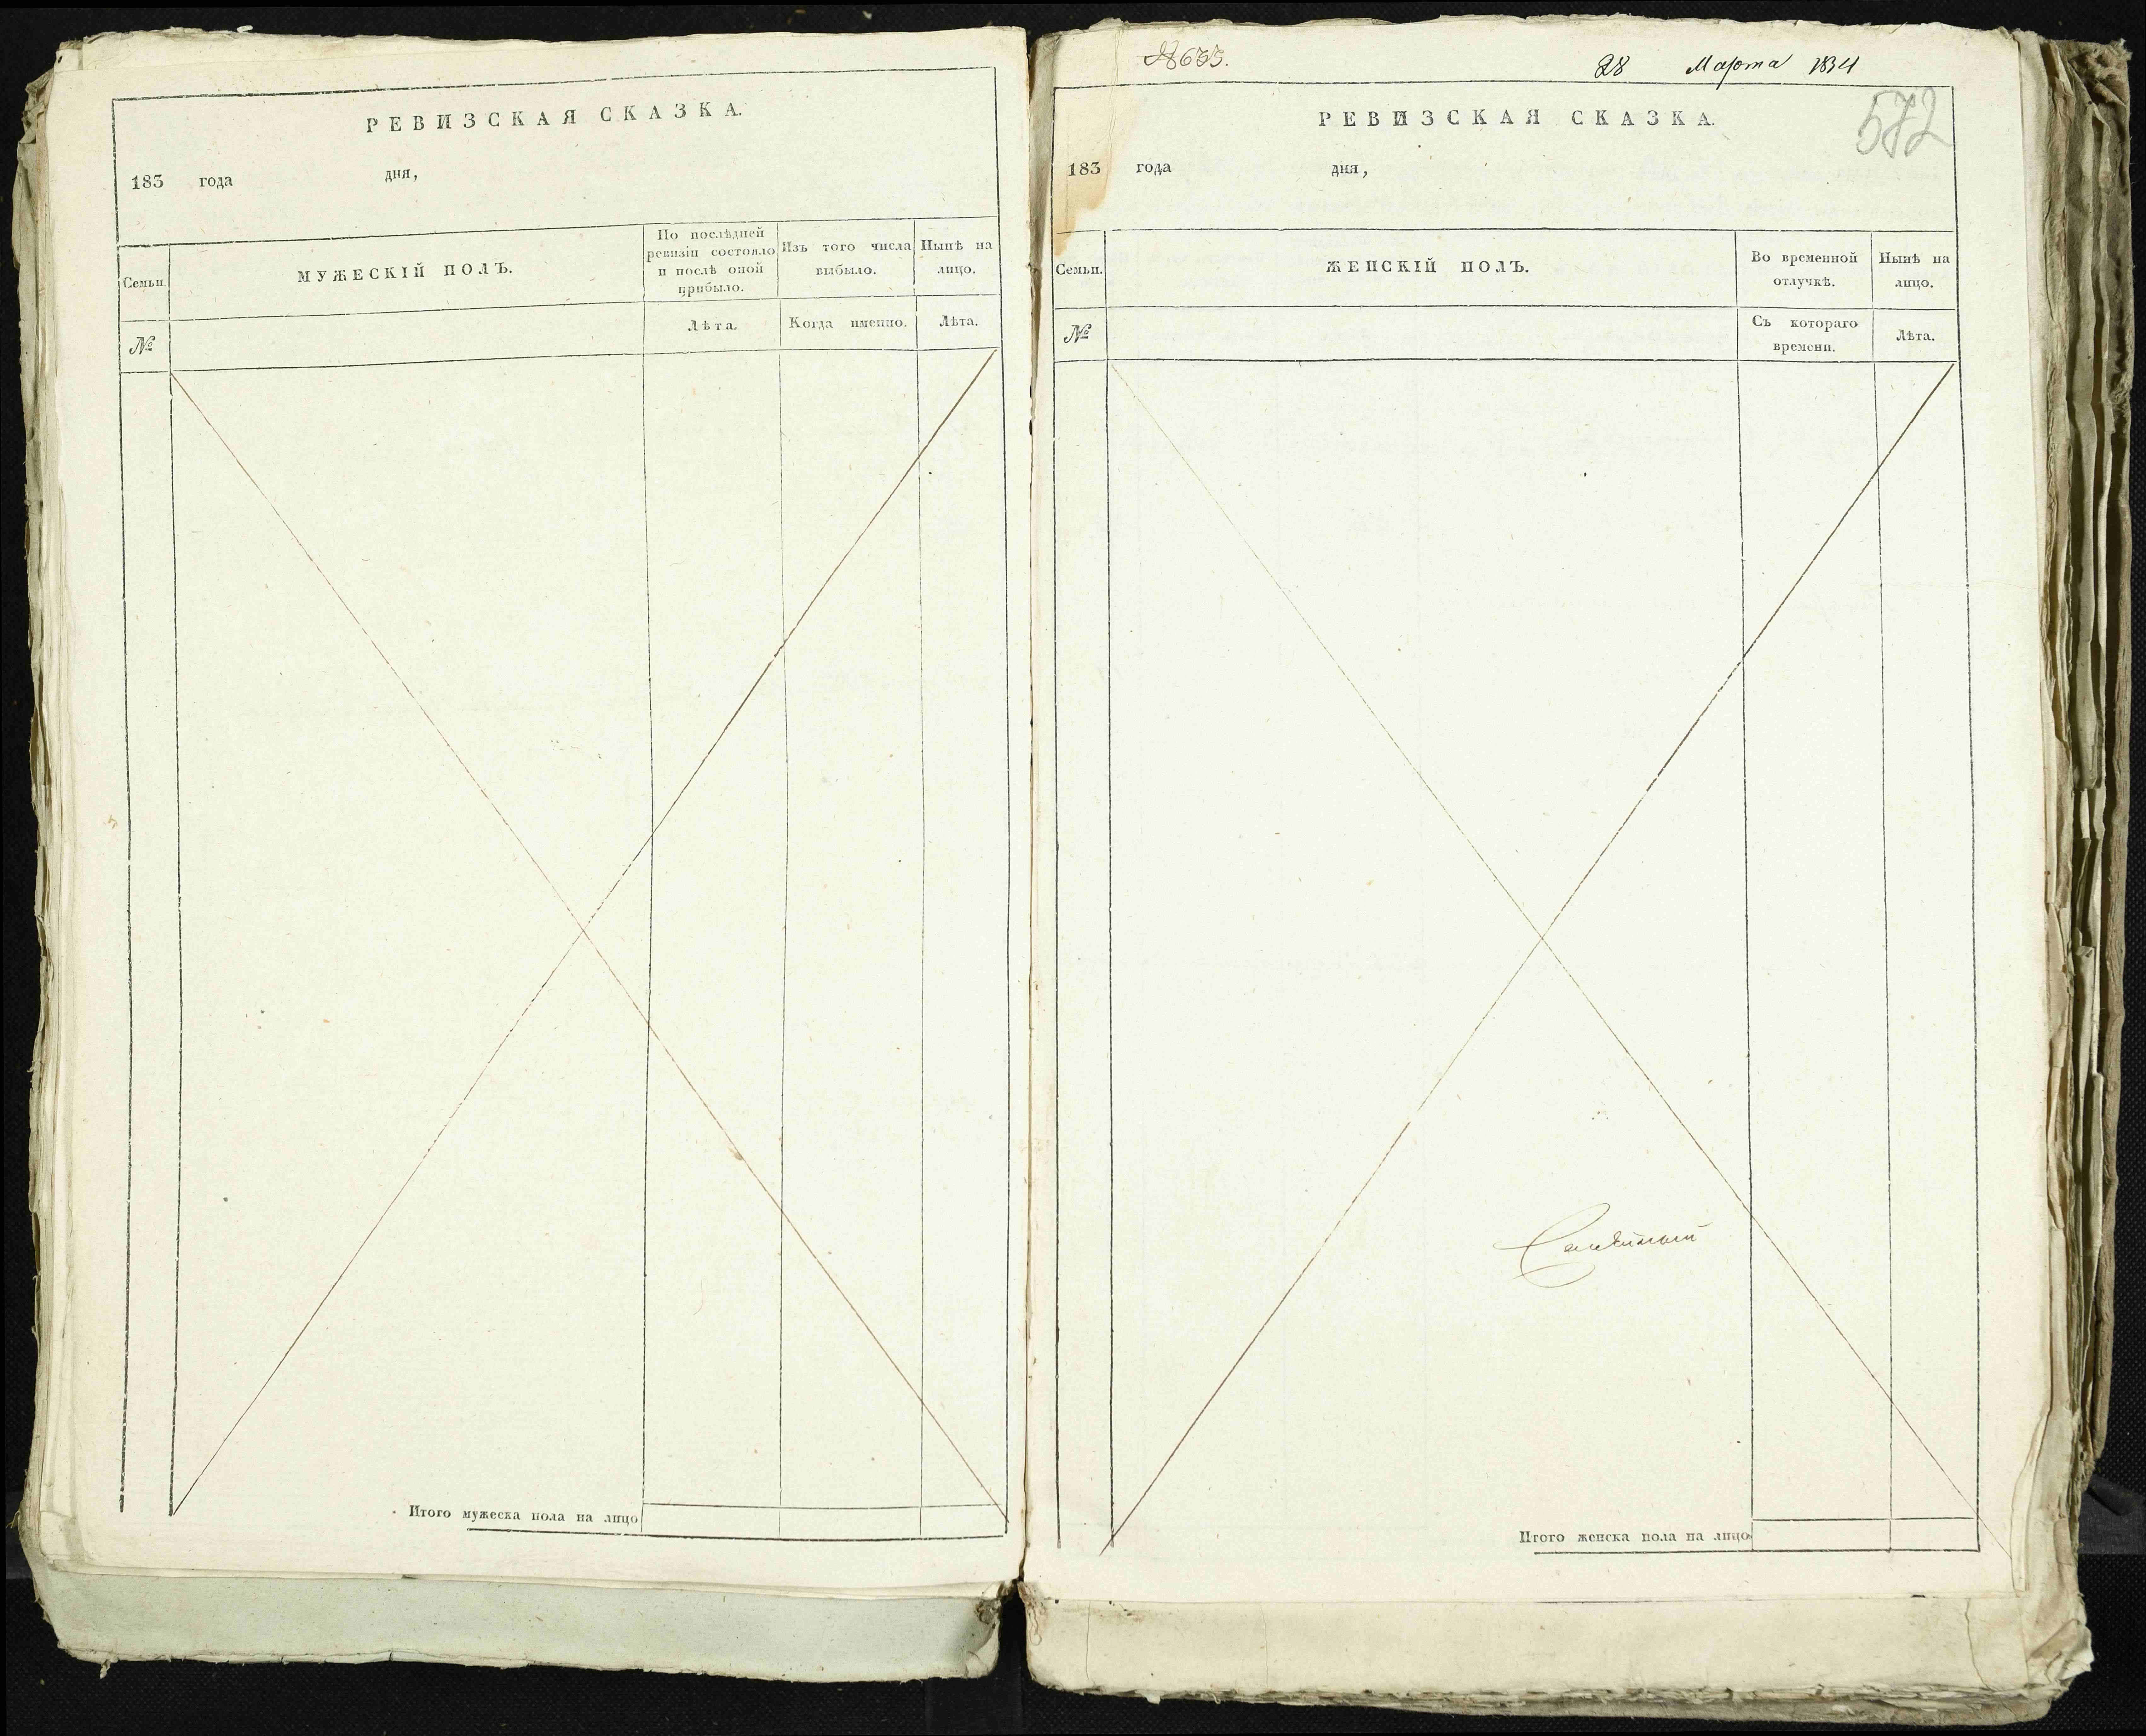 РЕВИЗСКАЯ СКАЗКА.
183 года дня,
Семьи.
МУЖЕСКІЙ ПОЛЪ.
По послѣдней ревизіи состояло и послѣ оной прибыло.
Изъ того числа выбыло.
Нынѣ на лицо.
№
Лѣта.
Когда именно.
Лѣта.
Итого мужеска пола на лицо
28 Марта 1834
572
РЕВИЗСКАЯ СКАЗКА.
183 года дня,
Семьи.
ЖЕНСКІЙ ПОЛЪ.
Во временной отлучкѣ.
Нынѣ на лицо.
№
Съ котораго времени.
Лѣта.
Итого женска пола на лицо